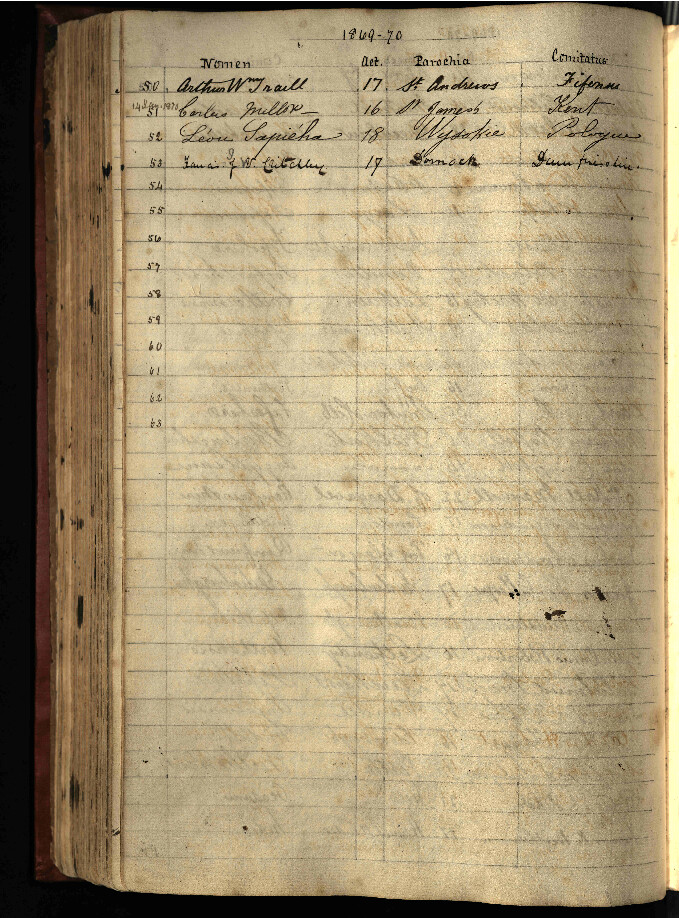 1869-70
Nomen Aet. Parochia Comitatus
50 Arthur Wm Traill 17 St Andrews Fifensis
51 Carlus Miller 16 St James Kent
52 Léon Sapiéha 18 Wysokie Pologne
53 W. Critchley 17 Dornock Dumfriesshire
54
55
56
57
58
59
60
61
62
63